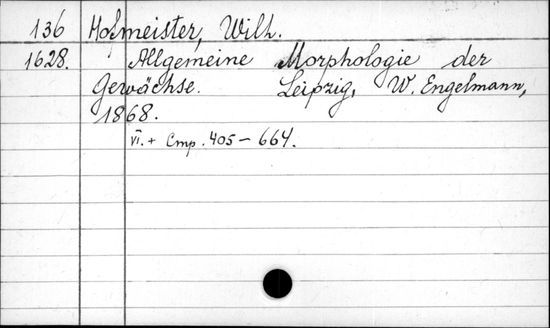 136 Hofmeister, Wilh.
1628. Allgemeine Morphologie der
Gewächse. Leipzig, W. Engelmann,
1868.
VI. + Стр. 405 – 664.